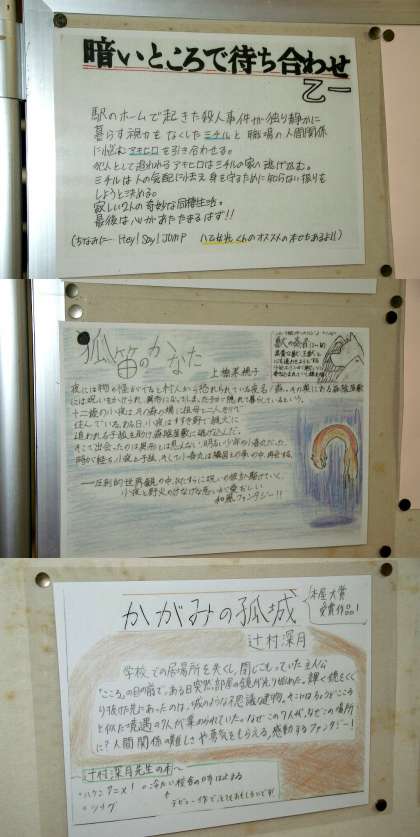 暗いところで待ち合わせ
乙一
駅のホームで起きた殺人事件が独り静かに
暮らす視力をなくしたミチルと職場の人間関係
に悩むアキヒロを引き合わせる。
犯人として追われるアキヒロはミチルの家へ逃げ込む。
ミチルは人の気配に怯え身を守るために知らない振りを
しようと決める。
寂しい2人の奇妙な同棲生活。
最後は心があたたまるはず!!
(ちなみに…Hey!Say!JUMP 八乙女光くんのオススメの本でもあるよ!!)
狐笛のかなた
上橋菜穂子
獣の奏者
夜には物の怪がでると村人から恐れられている夜名ノ森。その奥にある森陰屋敷
には呪いをかけられ
十二歳の小夜はその森の横に祖母と二人きりで
住んでいる。ある日、小夜はすすき野で猟犬に
追われる子狐を助け森陰屋敷に逃げ込んだ。
小夜と野火のけなげな思いが愛おしい
和風ファンタジー!!
かがみの孤城
本屋大賞
受賞作品!
辻村深月
学校での居場所を失くし、閉じこもっていた主人公
"こころ"の目の前で、ある日突然、部屋の鏡が光り始めた。輝く鏡をくぐ
り抜けた先にあったのは、城のような不思議な建物。そこにはちょうどこころ
と似た境遇の7人が集められていた。なぜこの7人が、なぜこの場所
に?人間関係の難しさや勇気をもらえる、感動するファンタジー!
~辻村深月先生の本~
・ハケンアニメ!
・冷たい校舎の時は止まる
・ツナグ
デビュー作で、とてもおもしろいです!